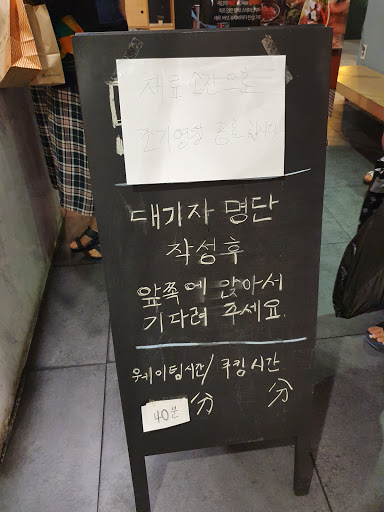 재료 소진으로
조기영업 종료합니다
대기자 명단
작성후
앞쪽에 앉아서
기다려 주세요.
웨이팅시간/쿠킹시간
40분 分 分